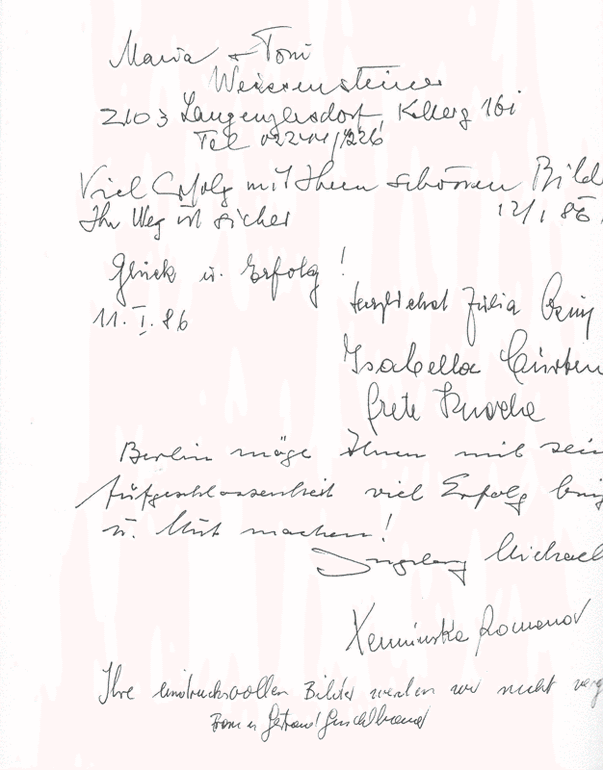 Maria + Toni
Weissensteiner
2103 Langenzersdorf, Kellerg 16i
Tel 02244/
Viel Erfolg mit Ihren schönen Bild
Ihr Weg ist sicher 12/1 86
Glück u. Erfolg!
herzlichst Julia
11. I. 86
Isabella
Grete
Berlin möge Ihnen mit sein
Aufgeschlossenheit viel Erfolg
u. Mut machen!
Ingeborg Michael
Romanov
Ihre eindrucksvollen Bilder werden wir nicht verg